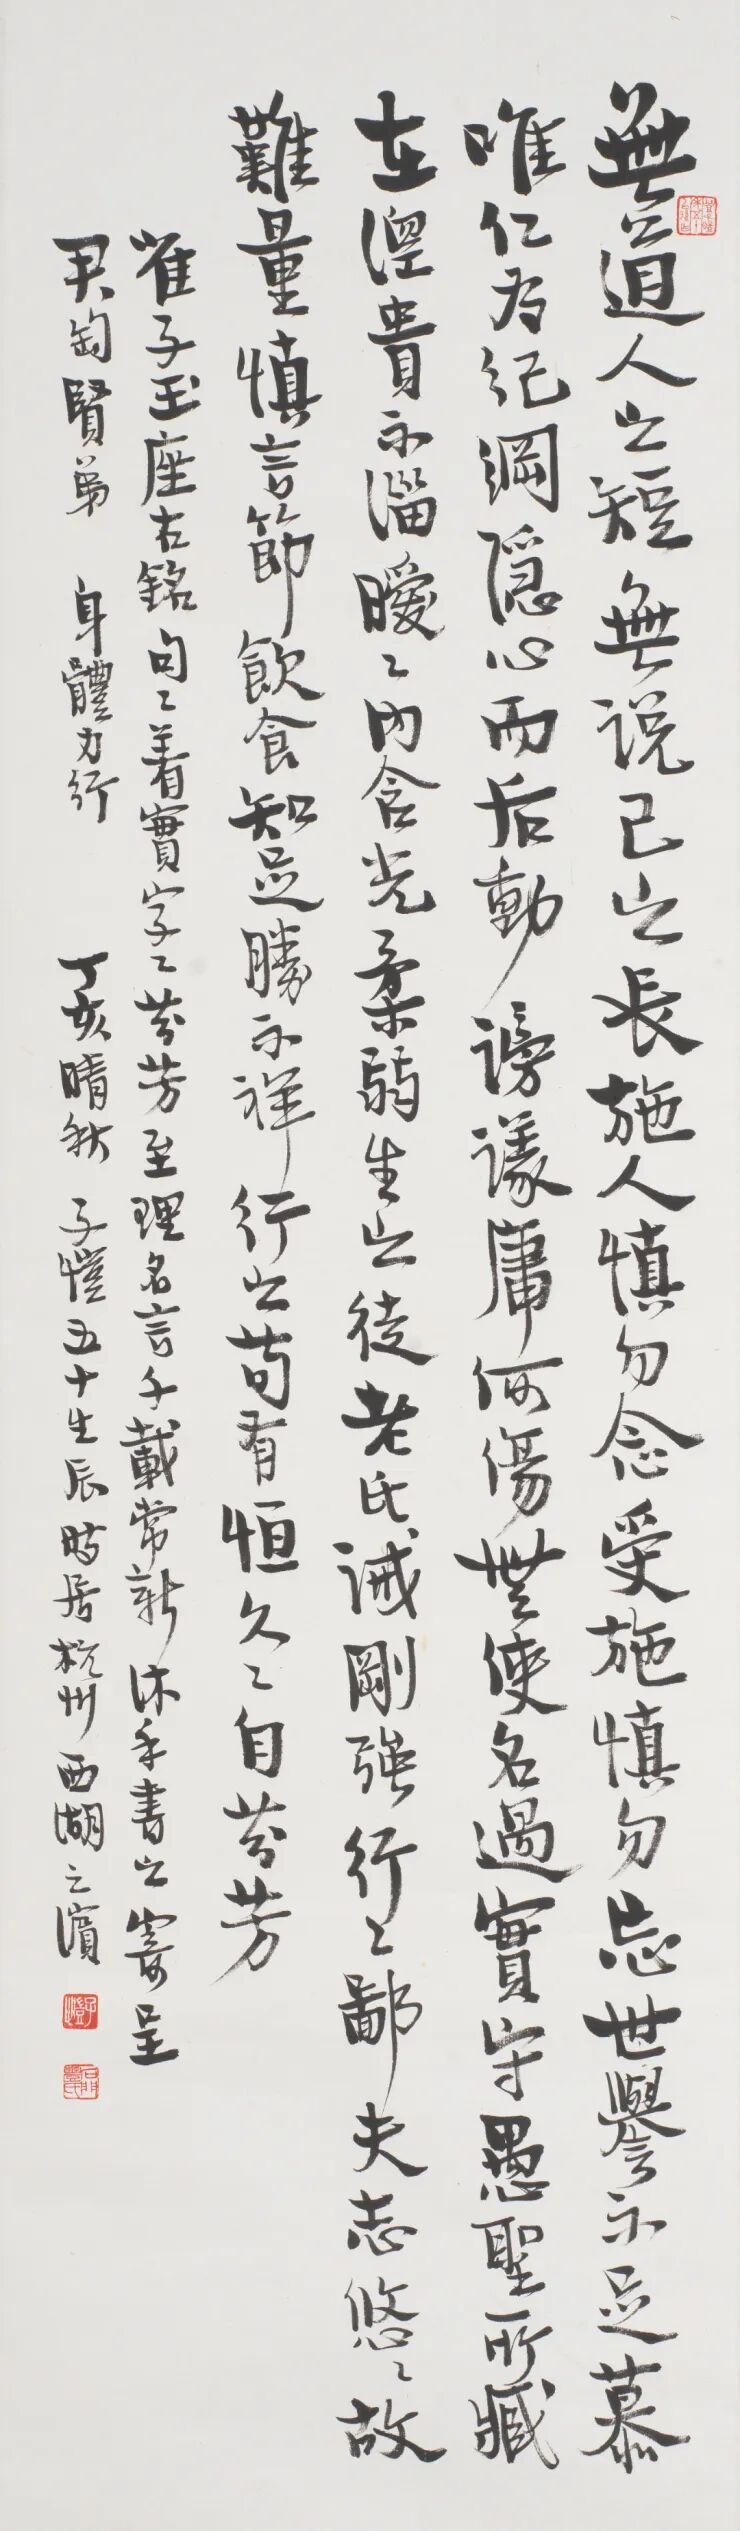 無道人之短無说己之长施人慎勿念受施慎勿忘世譽不足慕
唯仁为纪綱隐心而后動謗議庸何傷無使名過實守愚聖所臧
在涅貴不淄曖〻内含光柔弱生之徒老氏诫剛强行〻鄙夫志悠〻故
難量慎言節飲食知足勝不祥行之苟有恒久〻自芬芳
崔子玉座右銘句〻着實字〻芬芳至理名言千載常新沐手書之寄呈
尹钧賢弟 身體力行 丁亥晴秋 子愷五十生辰時居杭州西湖之濱